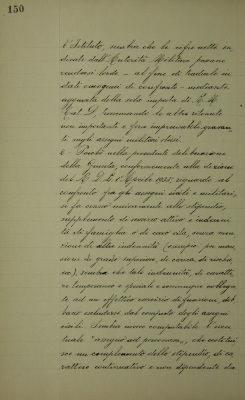 150
l'Istituto, sembra che le cifre nette in-
dicate dall'Autorità Militare, possano
rendersi lorde - al fine di renderle in
stati omogenei di confronto - mediante
aggiunta della sola imposta di R. M.
Cat. D, trascurando le altre ritenute
non importanti e forse imprecisabili gravan-
ti sugli assegni militari stessi.
6 - Poiché nella precedente deliberazione
della Giunta, conformemente alla dizione
del R. D. L. 1° Aprile 1935, riguardo al
confronto fra gli assegni civili e militari,
si fa cenno unicamente allo stipendio,
supplemento di servizio attivo e indenni-
tà di famiglia o di caro vita, senza men-
zione di altre indennità (campo, per man-
sioni di grado superiore, di carica, di rischio,
ecc.), sembra che tali indennità, di caratte-
re temporaneo e speciale e comunque collega-
te ad un effettivo esercizio di funzioni, deb-
bano escludersi dal computo degli assegni
civili. Sembra invece computabile l'even-
tuale "assegno ad personam", che costitui-
sce un complemento dello stipendio, di ca-
rattere continuativo e non dipendente da